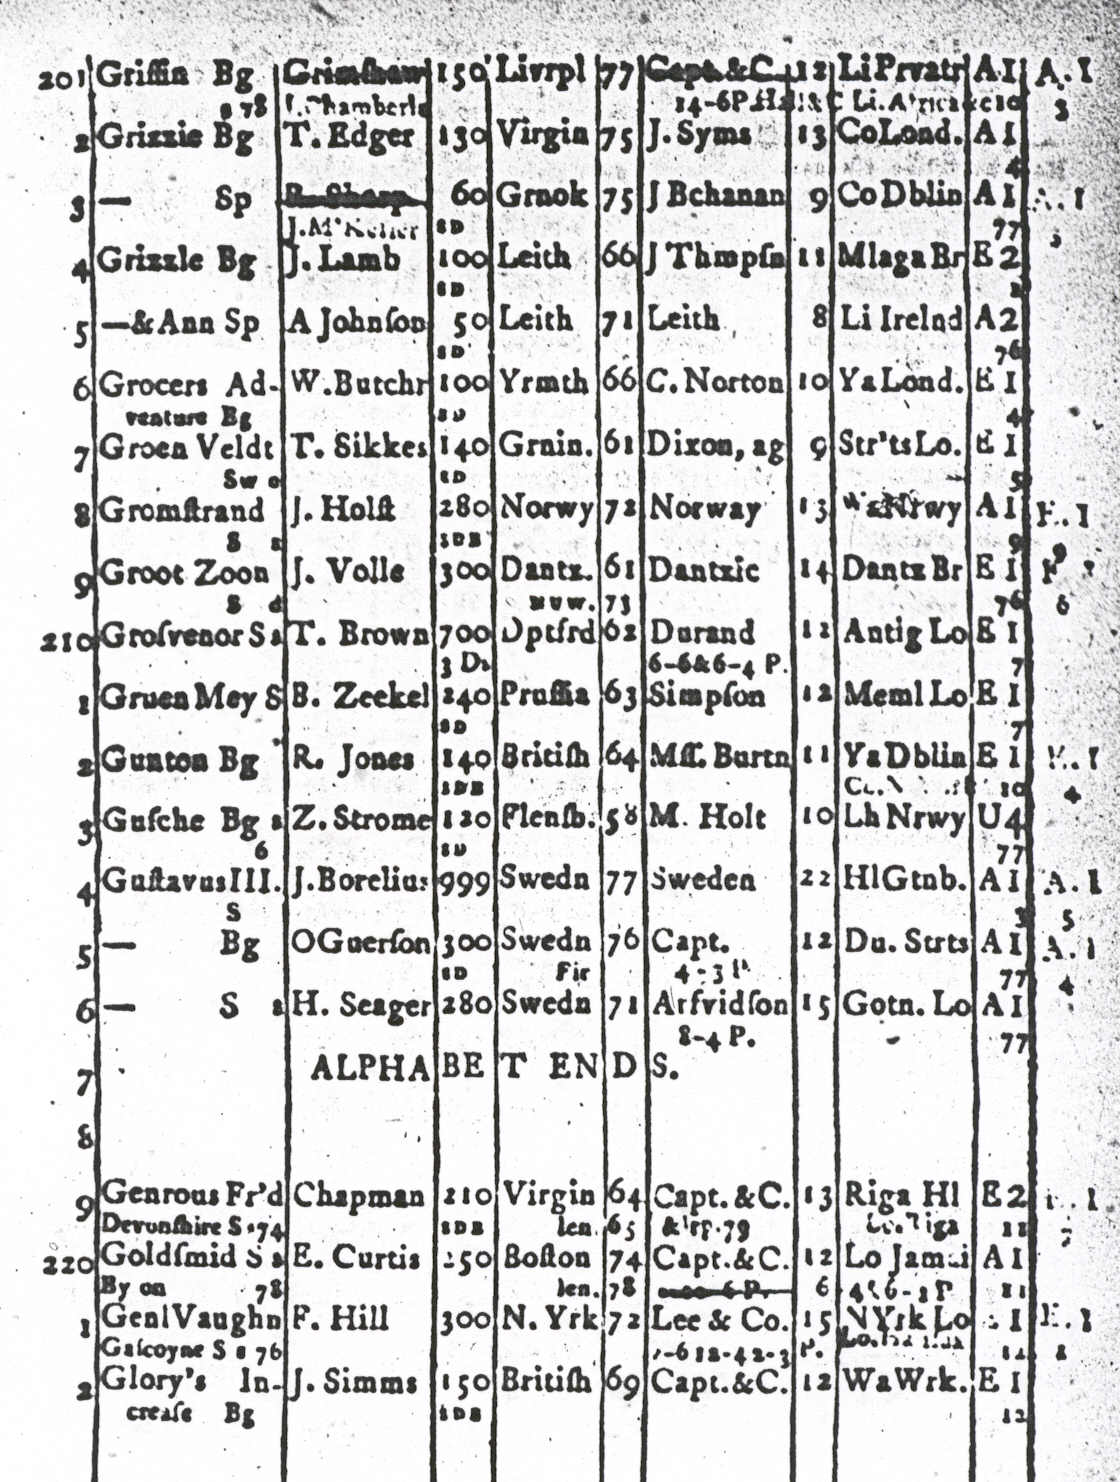 201 Griffin Bg 150 Livrpl 77 12 Li Prvatr A I A. I
s 78 J. Chamberln 14-6P. Li. Africa 10 3
2 Grizzie Bg T. Edger 130 Virgin 75 J. Syms 13 Co Lond. A I
4
3 — Sp 60 Grnok 75 J Bchanan 9 Co Dblin A I A. I
J. M'Keller SD 77 3
4 Grizzle Bg J. Lamb 100 Leith 66 J Thmpſn 11 Mlaga Br E 2
SD 2
5 —& Ann Sp A Johnſon 50 Leith 71 Leith 8 Li Irelnd A 2
SD 76
6 Grocers Ad- W. Butchr 100 Yrmth 66 C. Norton 10 Ya Lond. E I
venture Bg SD 4
7 Groen Veldt T. Sikkes 140 Grnin. 61 Dixon, ag 9 Str'ts Lo. E I
Sw o SD 5
8 Gromſtrand J. Holſt 280 Norwy 72 Norway 13 Wa Nrwy A I E. I
S s SDB 9 9
9 Groot Zoon J. Volle 300 Dantz. 61 Dantzic 14 Dantz Br E I
S d NUW. 73 76 6
210 Groſvenor S s T. Brown 700 Dptfrd 62 Durand 12 Antig Lo E I
3 Ds 6-6&6-4 P. 7
1 Gruen Mey S B. Zeekel 240 Pruſſia 63 Simpſon 12 Meml Lo E I
SD 7
2 Gunton Bg R. Jones 140 Britiſh 64 Mſſ. Burtn 11 Ya Dblin E I E. I
SDB 10 4
3 Guſche Bg s Z. Strome 120 Flenſb. 58 M. Holt 10 Lh Nrwy U 4
6 SD 77
4 Guſtavus III. J. Borelius 999 Swedn 77 Sweden 22 Hl Gtnb. A I A. I
S 3 5
5 — Bg O Guerſon 300 Swedn 76 Capt. 12 Du. Strts A I A. I
SD Fir 4-3 P. 77 4
6 — S s H. Seager 280 Swedn 71 Arfvidſon 15 Gotn. Lo A I
8-4 P. 77
7 ALPHABET ENDS.
8
9 Genrous Fr'd Chapman 210 Virgin 64 Capt. & C. 13 Riga Hl E 2
Devonſhire S s 74 SDB len. 65 &rp. 79 Lo. Riga 11 7
220 Goldſmid S s E. Curtis 250 Boſton 74 Capt. & C. 12 Lo Jamai A I
By on 78 len. 78 6 4&6-3 P 11
1 Genl Vaughn F. Hill 300 N. Yrk 72 Lee & Co. 15 N Yrk Lo I E. I
Gaſcoyne S s 76 -6 12-42-3 P. 12
2 Glory's In- J. Simms 150 Britiſh 69 Capt. & C. 12 Wa Wrk. E I
creaſe Bg SDB 12